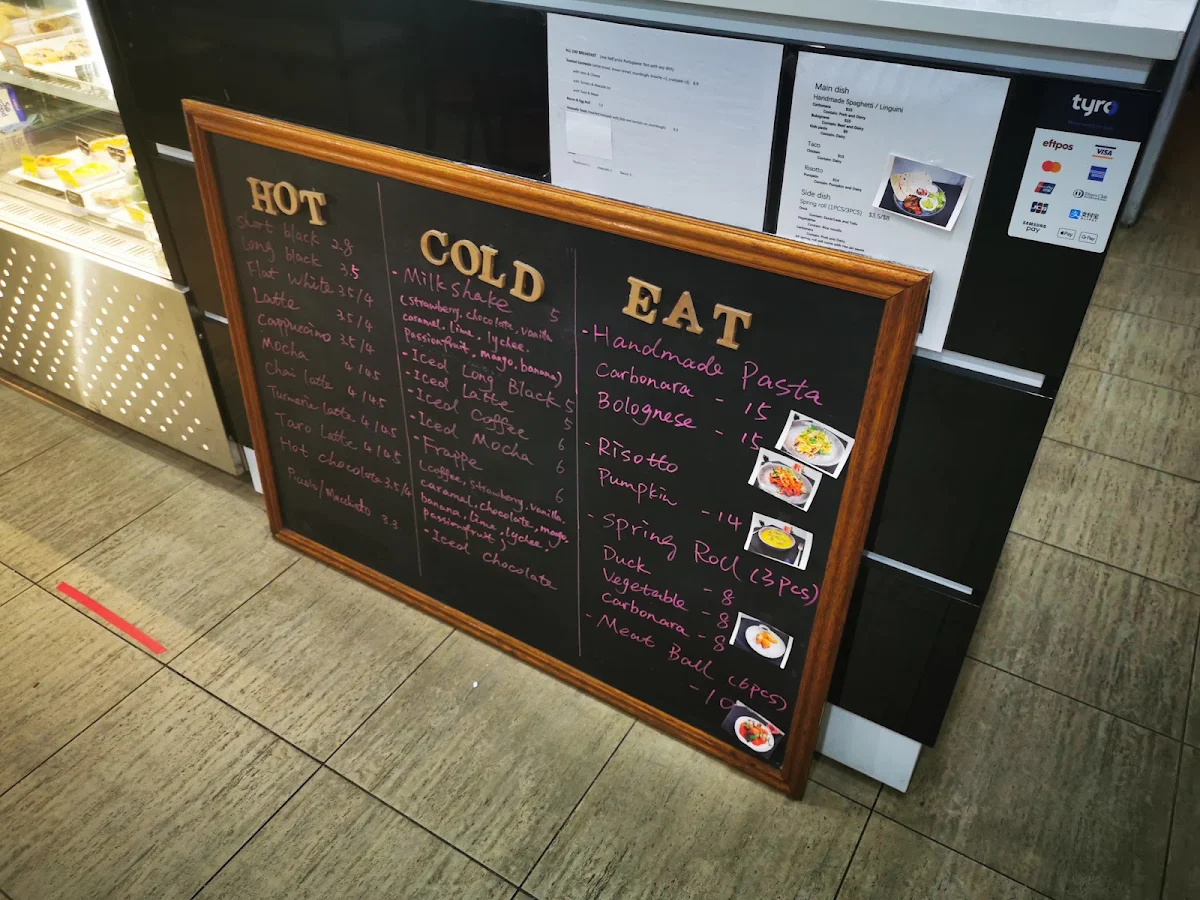 HOT
Short black 2.8
Long black 3.5
Flat White 3.5/4
Latte 3.5/4
Cappuccino 3.5/4
Mocha 4/4.5
Chai latte 4/4.5
Turmeric latte 4/4.5
Taro Latte 4/4.5
Hot chocolate 3.5/4
Piccolo/Macchiato 3.3
COLD
- Milkshake 5
(strawberry, chocolate, vanilla
caramel, lime, lychee.
passionfruit, mango, banana)
- Iced Long Black 5
- Iced Latte 5
- Iced Coffee 6
- Iced Mocha 6
- Frappe 6
(coffee, strawberry, vanilla.
caramel, chocolate, mango.
banana, lime, lychee.
passionfruit)
- Iced Chocolate
EAT
- Handmade Pasta
Carbonara - 15
Bolognese - 15
- Risotto
Pumpkin - 14
- Spring Roll (3pcs)
Duck - 8
Vegetable - 8
Carbonara - 8
- Meat Ball (6pcs)
- 10
Main dish
Handmade Spaghetti / Linguini
Carbonara $15
Contain: Pork and Dairy
Bolognese $15
Contain: Beef and Dairy
Kids pasta
Contain: Dairy
Taco
Chicken
Contain: Dairy
Risotto
Pumpkin
Contain: Pumpkin and Dairy
Side dish
Spring roll (1PCS/3PCS) $3.5/$8
Duck
Vegetable
Carbonara
Contain: Pork and Dairy
tyro
eftpos
VISA
JCB
SAMSUNG
pay
Pay
G Pay